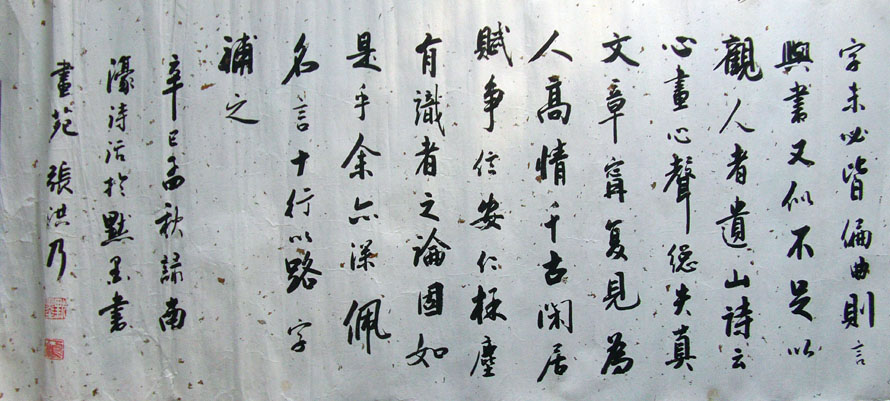 字未必皆偏曲則言
與書又似不足以
觀人者遺山詩云
心畫心聲總失真
文章寧復見為
人高情千古閑居
賦爭信安仁拜塵
有識者之論固如
是乎余亦深佩
名言十行以路字
補之
辛巳孟秋錄南
濠詩話於默墨書
畫苑張洪乃